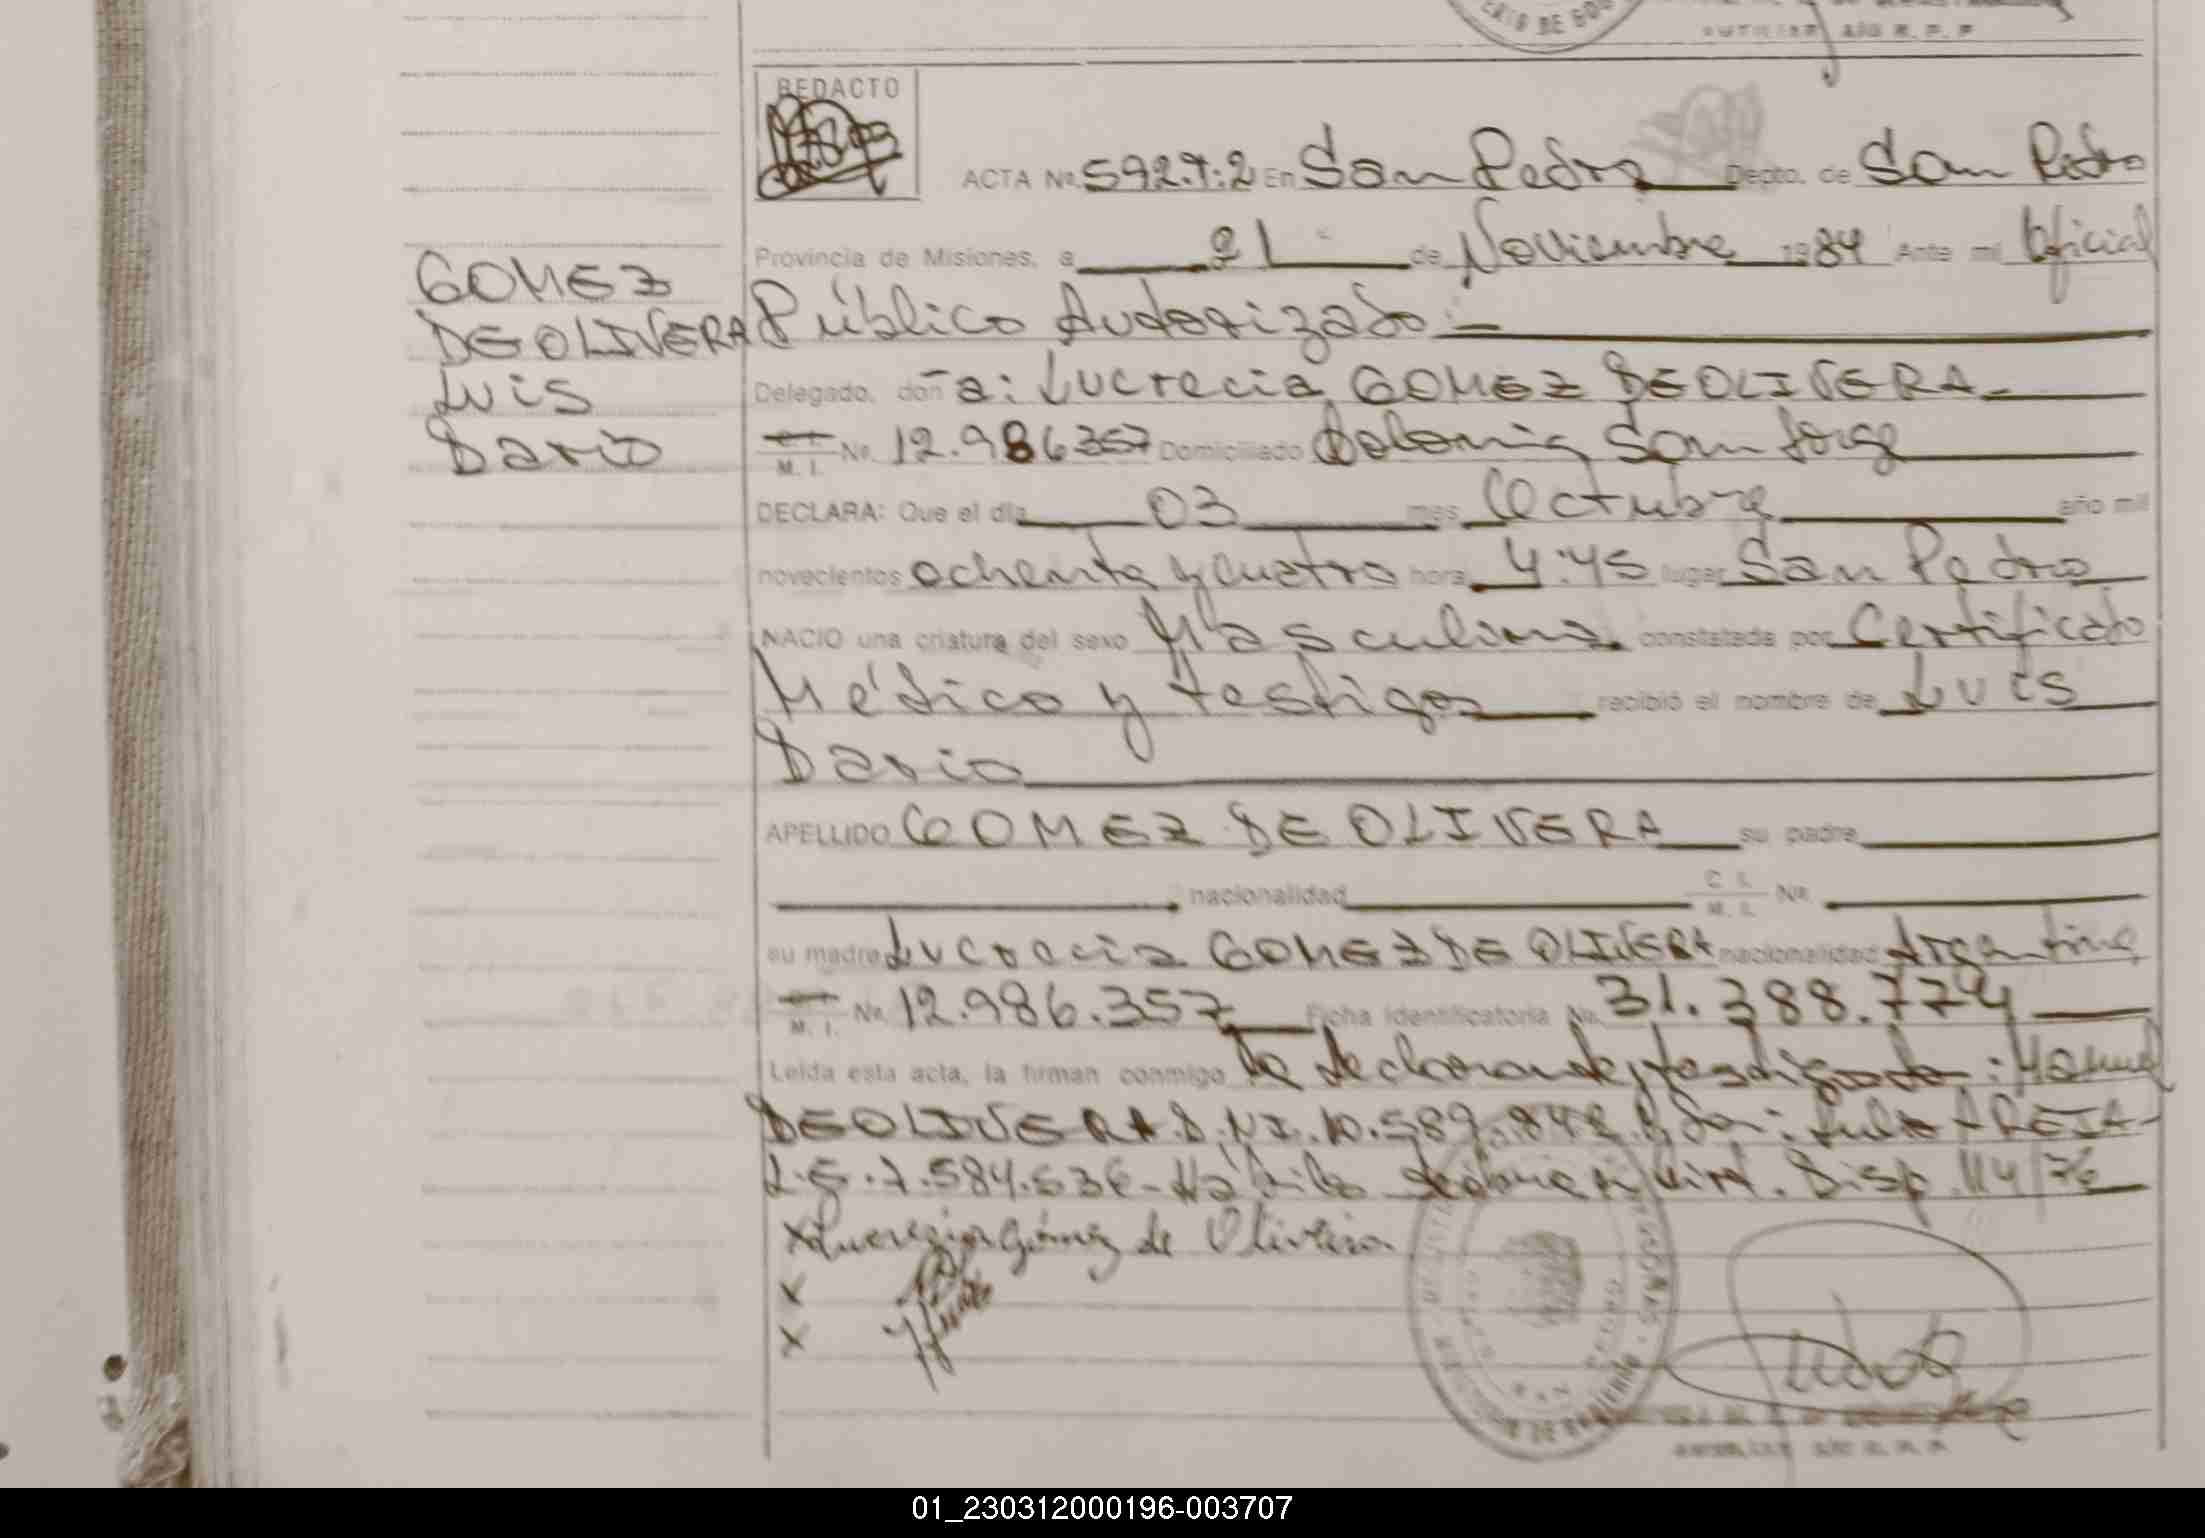 REDACTO
ACTA Nº 592.T:2 En San Pedro Depto. de San Pedro
Provincia de Misiones, a 21 de Noviembre 1984 Ante mi Oficial
Público Autorizado
Delegado, doña: Lucrecia GOMEZ DE OLIVERA
M. I. Nº. 12.986357 Domiciliado Colonia San Jorge
DECLARA: Que el día 03 mes Octubre año mil
novecientos ochenta y cuatro hora 4:45 lugar San Pedro
NACIO una criatura del sexo Masculino constatada por Certificato
Médico y testigos recibió el nombre de Luis
Dario
APELLIDO GOMEZ DE OLIVERA su padre
nacionalidad C. I. M. I. Nº.
su madre Lucrecia GOMEZ DE OLIVERA nacionalidad Argentina
M. I. Nº 12.986.357 Ficha identificatoria No. 31.388.774
Leída esta acta, la firman conmigo la declarante y testigos : Manuel
DE OLIVERA D.NI. 10.589.848 y don: AREJA
7.584.636 Disp. 114/76
Gómez de Oliveira
x
x
GOMEZ
DE OLIVERA
Luis
Dario
01_230312000196-003707